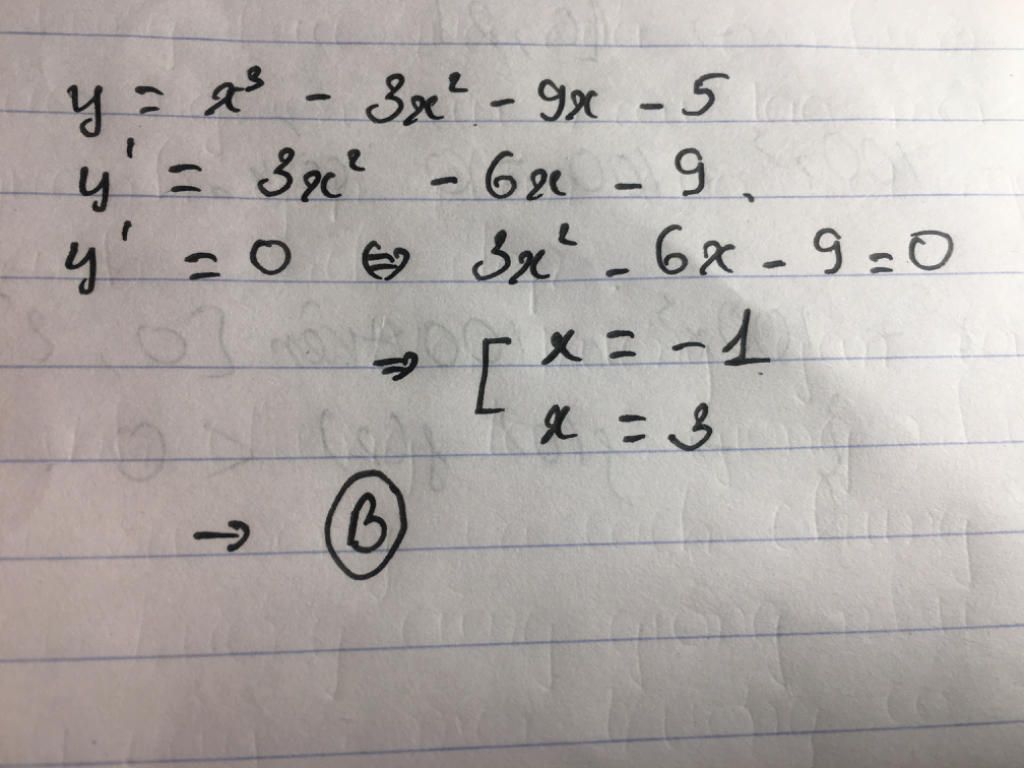 y = x³ - 3x² - 9x - 5
y' = 3x² - 6x - 9.
y' = 0 ⇔ 3x² - 6x - 9 = 0
⇒ [ x = -1
x = 3
→ B